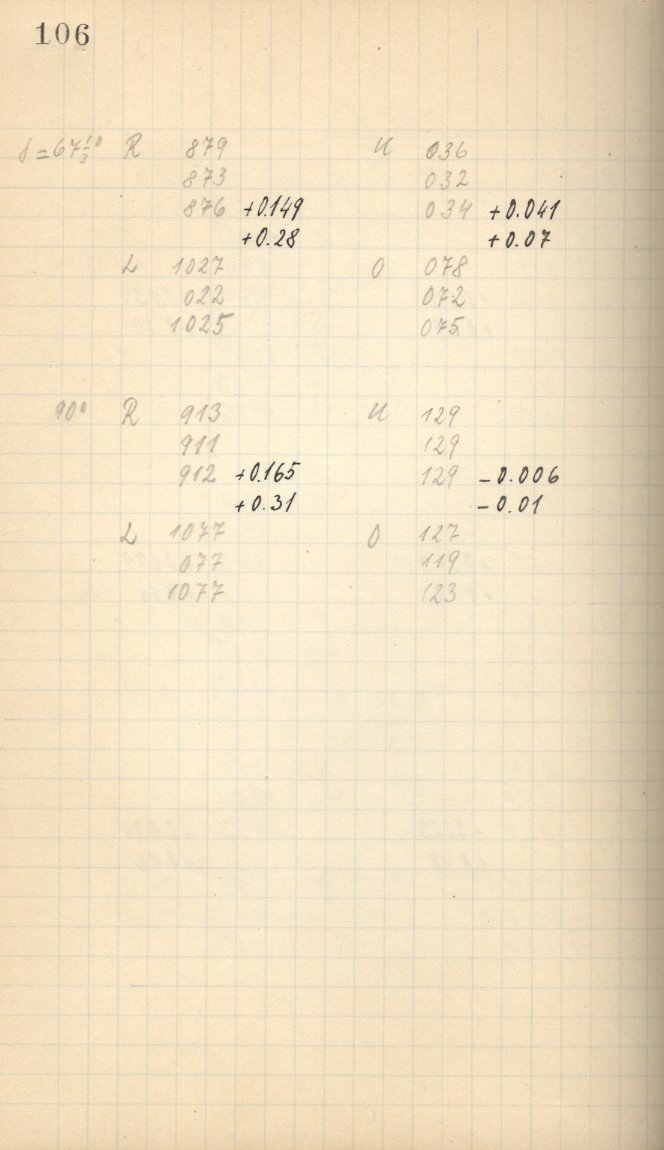 106
δ = 67 1/2° R 879 U 036
873 032
876 +0.149 034 +0.041
+0.28 +0.07
L 1027 O 078
022 072
1025 075
90° R 913 U 129
911 129
912 +0.165 129 -0.006
+0.31 -0.01
L 1077 O 127
077 119
1077 123